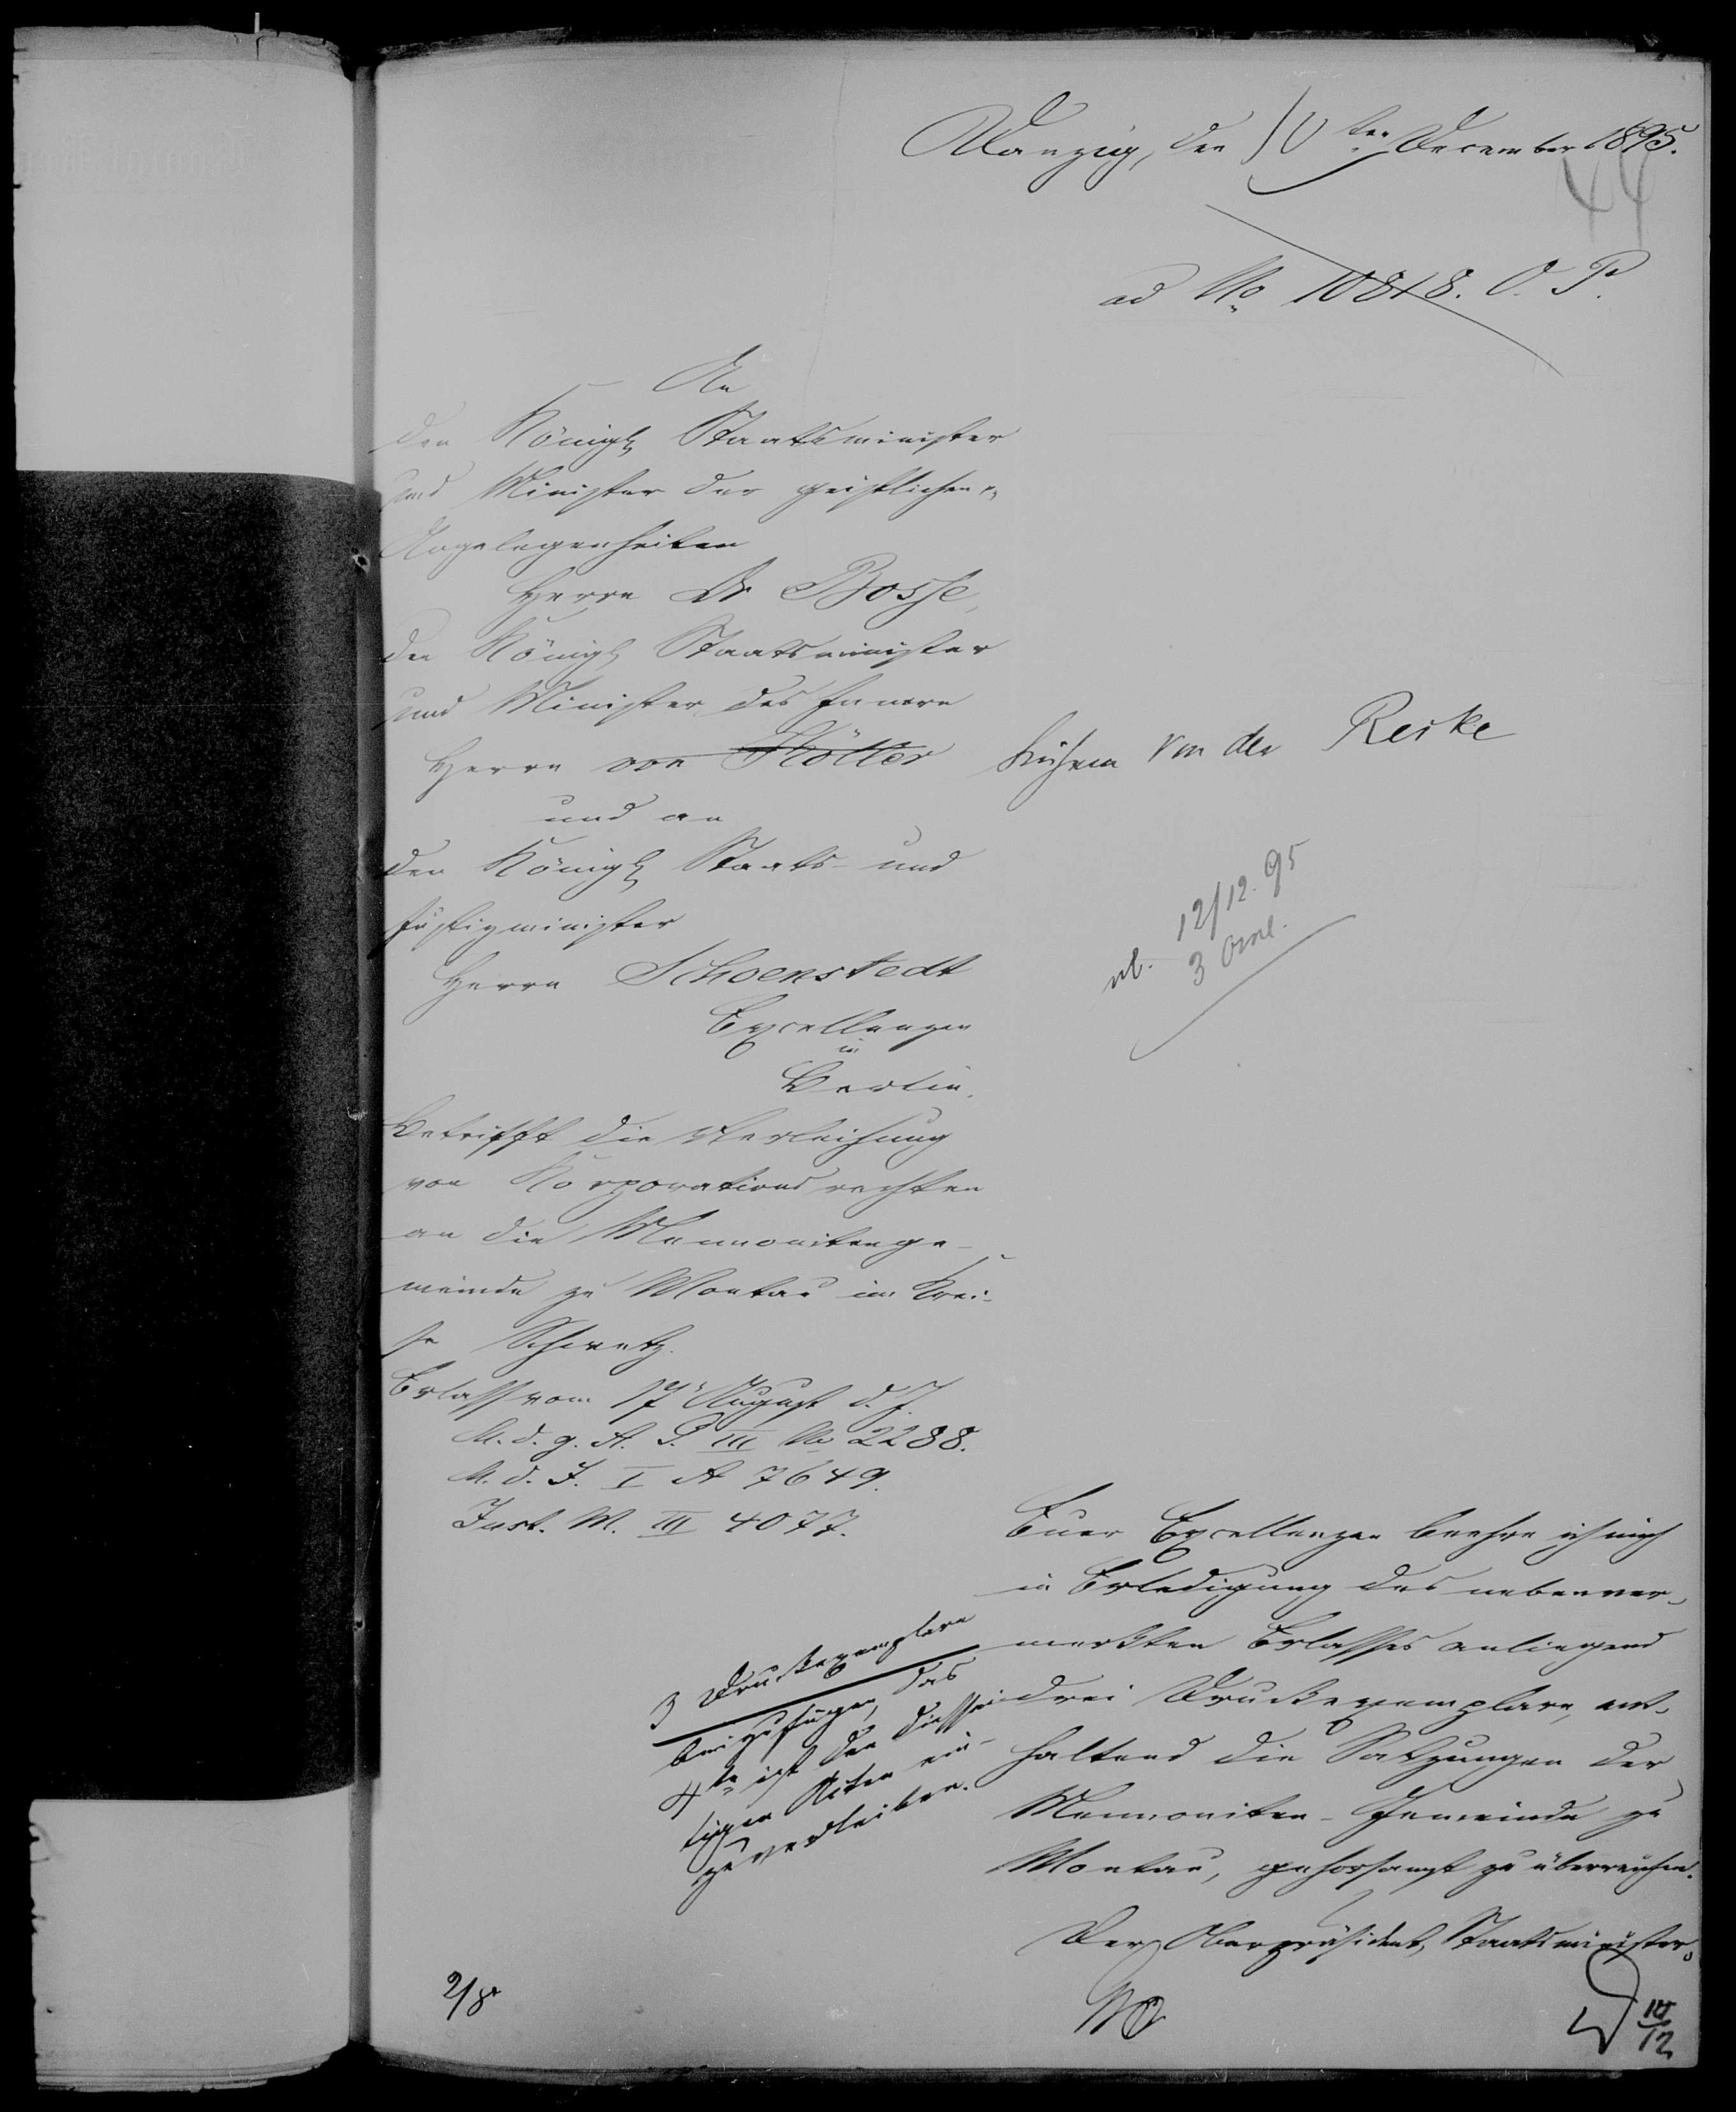 Danzig, den 10ten December 1895.
44
ad No 10818. O. P.
An
den Königl Staatsminister
und Minister der geistlichen p.
Angelegenheiten
Herrn Dr Bosse,
den Königl Staatsminister
und Minister des Innern
Herrn von Köller Freiherrn von der Recke
und an
den Königl Staats- und
Justizminister
Herrn Schoenstedt
Excellenzen
in
Berlin.
12/12. 95
3 Anl.
Betrifft die Verleihung
von Korporationsrechten
an die Mennonitenge-
meinde zu Montau im Krei-
se Schwetz.
Erlaß vom 17 August d. J.
M. d. g. A. G. III No 2288.
M. d. I. I A 7649.
Just. M. III 4077.
Euer Excellenzen beehre ich mich
in Erledigung des nebenver-
merkten Erlasses anliegend
drei Druckexemplare, ent-
haltend die Satzungen der
Mennoniten-Gemeinde zu
Montau, gehorsamst zu überreichen.
3 Druckexemplare
beizufügen, das
4te ist den diessei-
tigen Akten ein-
zuverleiben.
Der Oberpräsident, Staatsminister.
10/12